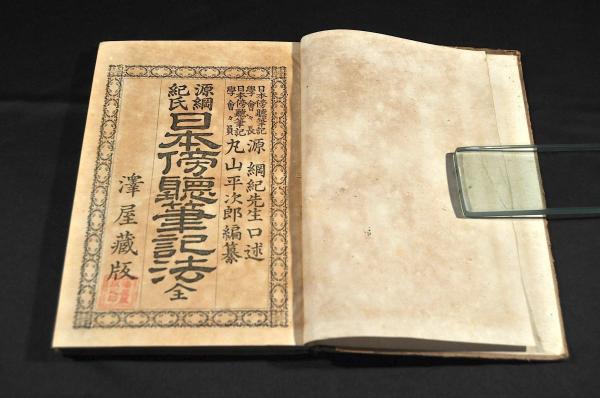 日本傍聽筆記學會々長 源綱紀先生口述
日本傍聽筆記學會々員 丸山平次郎編纂
源綱紀氏 日本傍聽筆記法 全
澤屋藏版